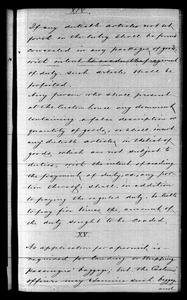 XIV.
If any dutiable articles not set
forth in the entry shall be found
concealed in any package of goods,
with intent to evade payment
of duty such articles shall be
forfeited.
Any person who shall present
at the Custom house any document
containing a false description or
quantity of goods, or shall insert
any dutiable articles in a list of
goods, which are not subject to
duties, with the intent of evading
the payment of duty on any por-
tion thereof, shall, in addition
to paying the regular duty, be liable
to pay five times the amount of
the duty sought to be evaded.
XV.
An application for a permit is
required for landing or shipping
passengers baggage, but the Customs
officers may examine such baggage
and